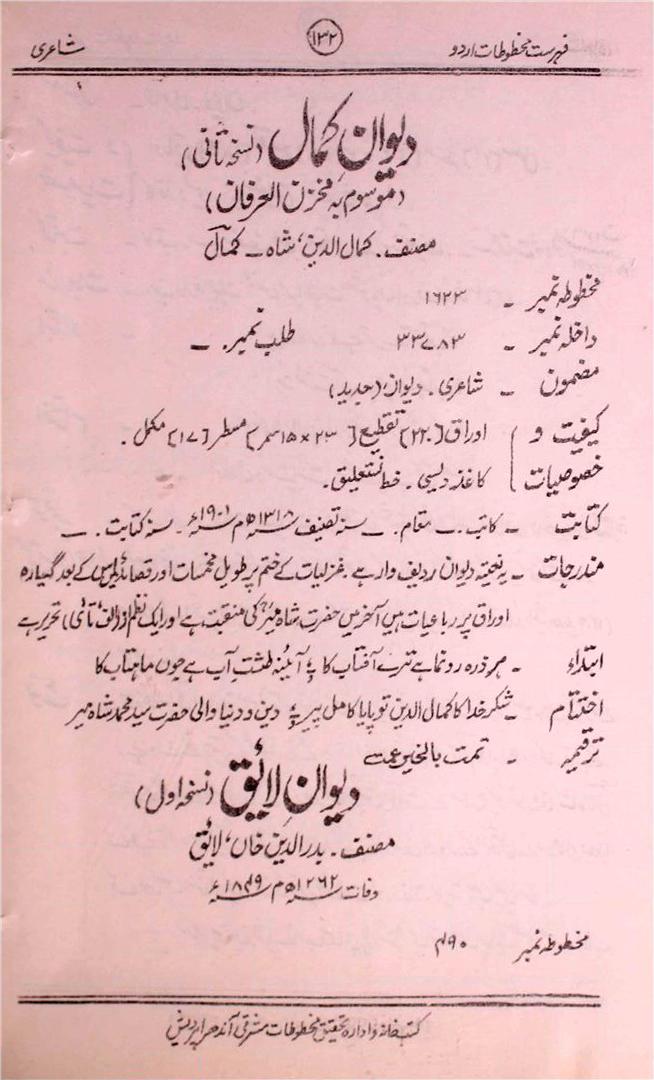 فہرست مخطوطات اردو ۱۳۲ شاعری
دیوانِ کمال (نسخہ ثانی)
(موسوم بہ مخزن العرفان)
مصنف۔ کمال الدین، شاہ ۔ کمال
مخطوطہ نمبر ۔ ۱۶۲۳
داخلہ نمبر ۔ ۳۳۷۸۳ طلب نمبر۔ ۔
مضمون ۔ شاعری۔ دیوان، (جدید)
کیفیت و اوراق [۲۲۰] تقطیع [۲۳ × ۱۵ سمر] مسطر [۱۷] مکمل۔
خصوصیات کاغذ دیسی۔ خط نستعلیق۔
کتابت ۔ کاتب۔ ۔ مقام۔ ۔ سنہ تصنیف ۱۳۱۸ھ م ۱۹۰۱ء۔ سنہ کتابت۔ ۔
مندرجات ۔ یہ نعتیہ دیوان ردیف وار ہے۔ غزلیات کے ختم پر طویل مخمسات اور قصائد ہیں اس کے بعد گیارہ
اوراق پر رباعیات ہیں آخر میں حضرت شاہ میرؒ کی منقبت ہے اور ایک نظم از (الف تا ی) تحریر ہے
ابتداء ۔ ہر ذرہ رونما ہے ترے آفتاب کا ؎ آئینہ طشتِ آب ہے جوں ماہتاب کا
اختتام ۔ شکر خدا کا کمال الدین تو پایا کامل پیر ؎ دین و دنیا والی حضرت سید محمد شاہ میر
ترقیمہ ۔ تمت بالخیر
دیوانِ لائق (نسخہ اول)
مصنف۔ بدر الدین خاں، لائق
وفات ۱۲۶۲ھ م ۱۸۴۹ء
مخطوطہ نمبر ۴۹۰
کتب خانہ و ادارہ تحقیق مخطوطات مشرقی آندھرا پردیش